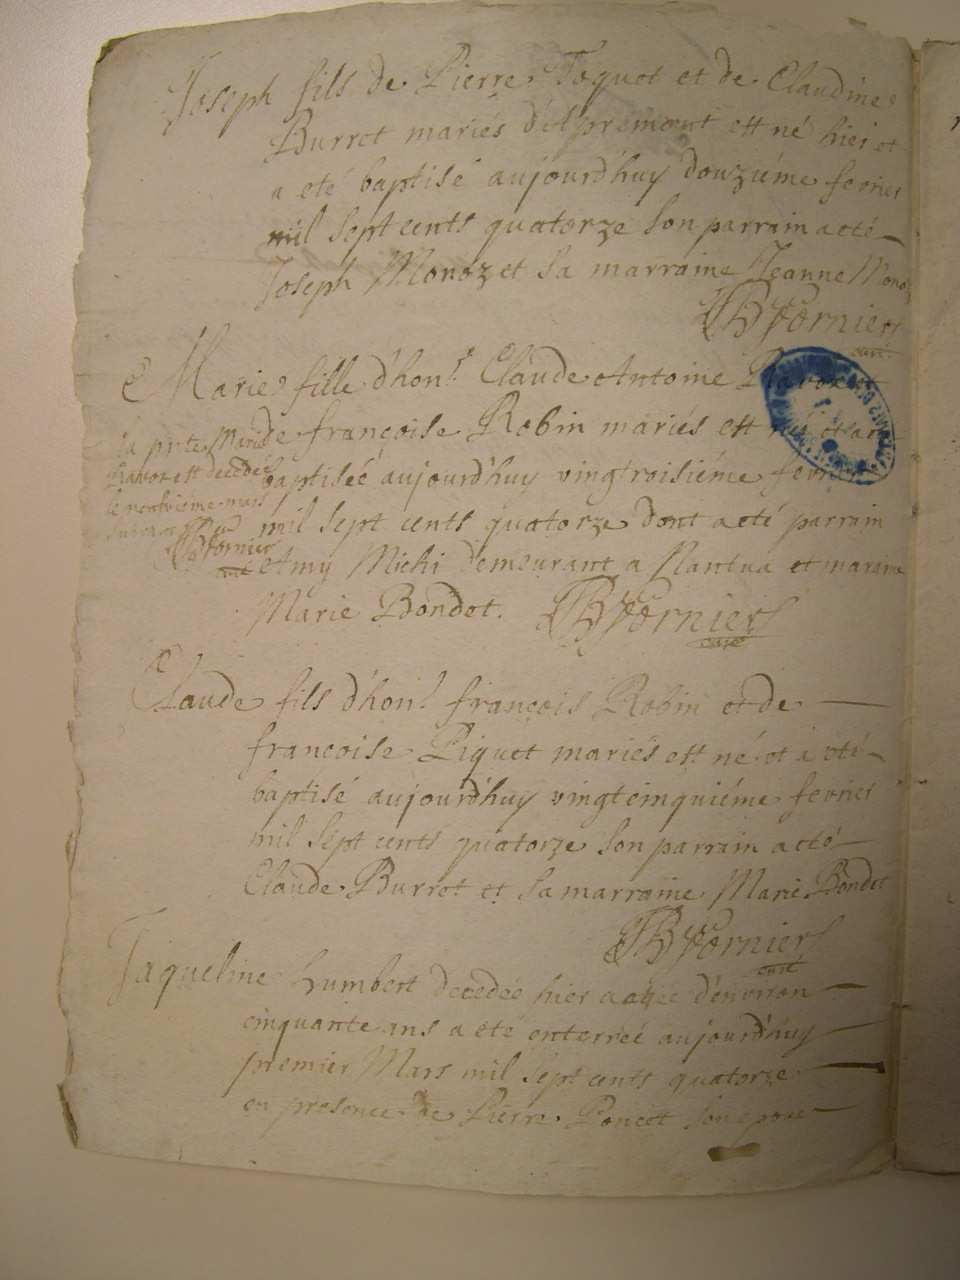 Joseph fils de Pierre Toquet et de Claudine
Burret mariés est né hier et
a eté baptisé aujourd'huy douziéme fevrier
mil sept cents quatorze son parrain a eté
Joseph Monoz et sa marraine Jeanne Monoz
Fornier
curé
Marie fille d'hon.^e Claude Antoine
de françoise Robin mariés est née et a eté
baptisée aujourd'huy vingtroisiéme fevrier
mil sept cents quatorze dont a eté parrain
Amy Michi demeurant a Nantua et maraine
Marie Bondet. Fornier
curé
la p^nte Marie
est decedée
le neufviéme mars
suivant
Fornier
curé
Claude fils d'hon.^e françois Robin et de
francoise Piquet mariés est né et a eté
baptisé aujourd'huy vingtcinquiéme fevrier
mil sept cents quatorze son parrain a eté
Claude Burret et sa marraine Marie Bondet
Fornier
curé
Jaqueline Humbert decedée hier agée d'environ
cinquante ans a eté enterreé aujourd'huy
premier Mars mil sept cents quatorze
en presence de Pierre Poncet son epoux